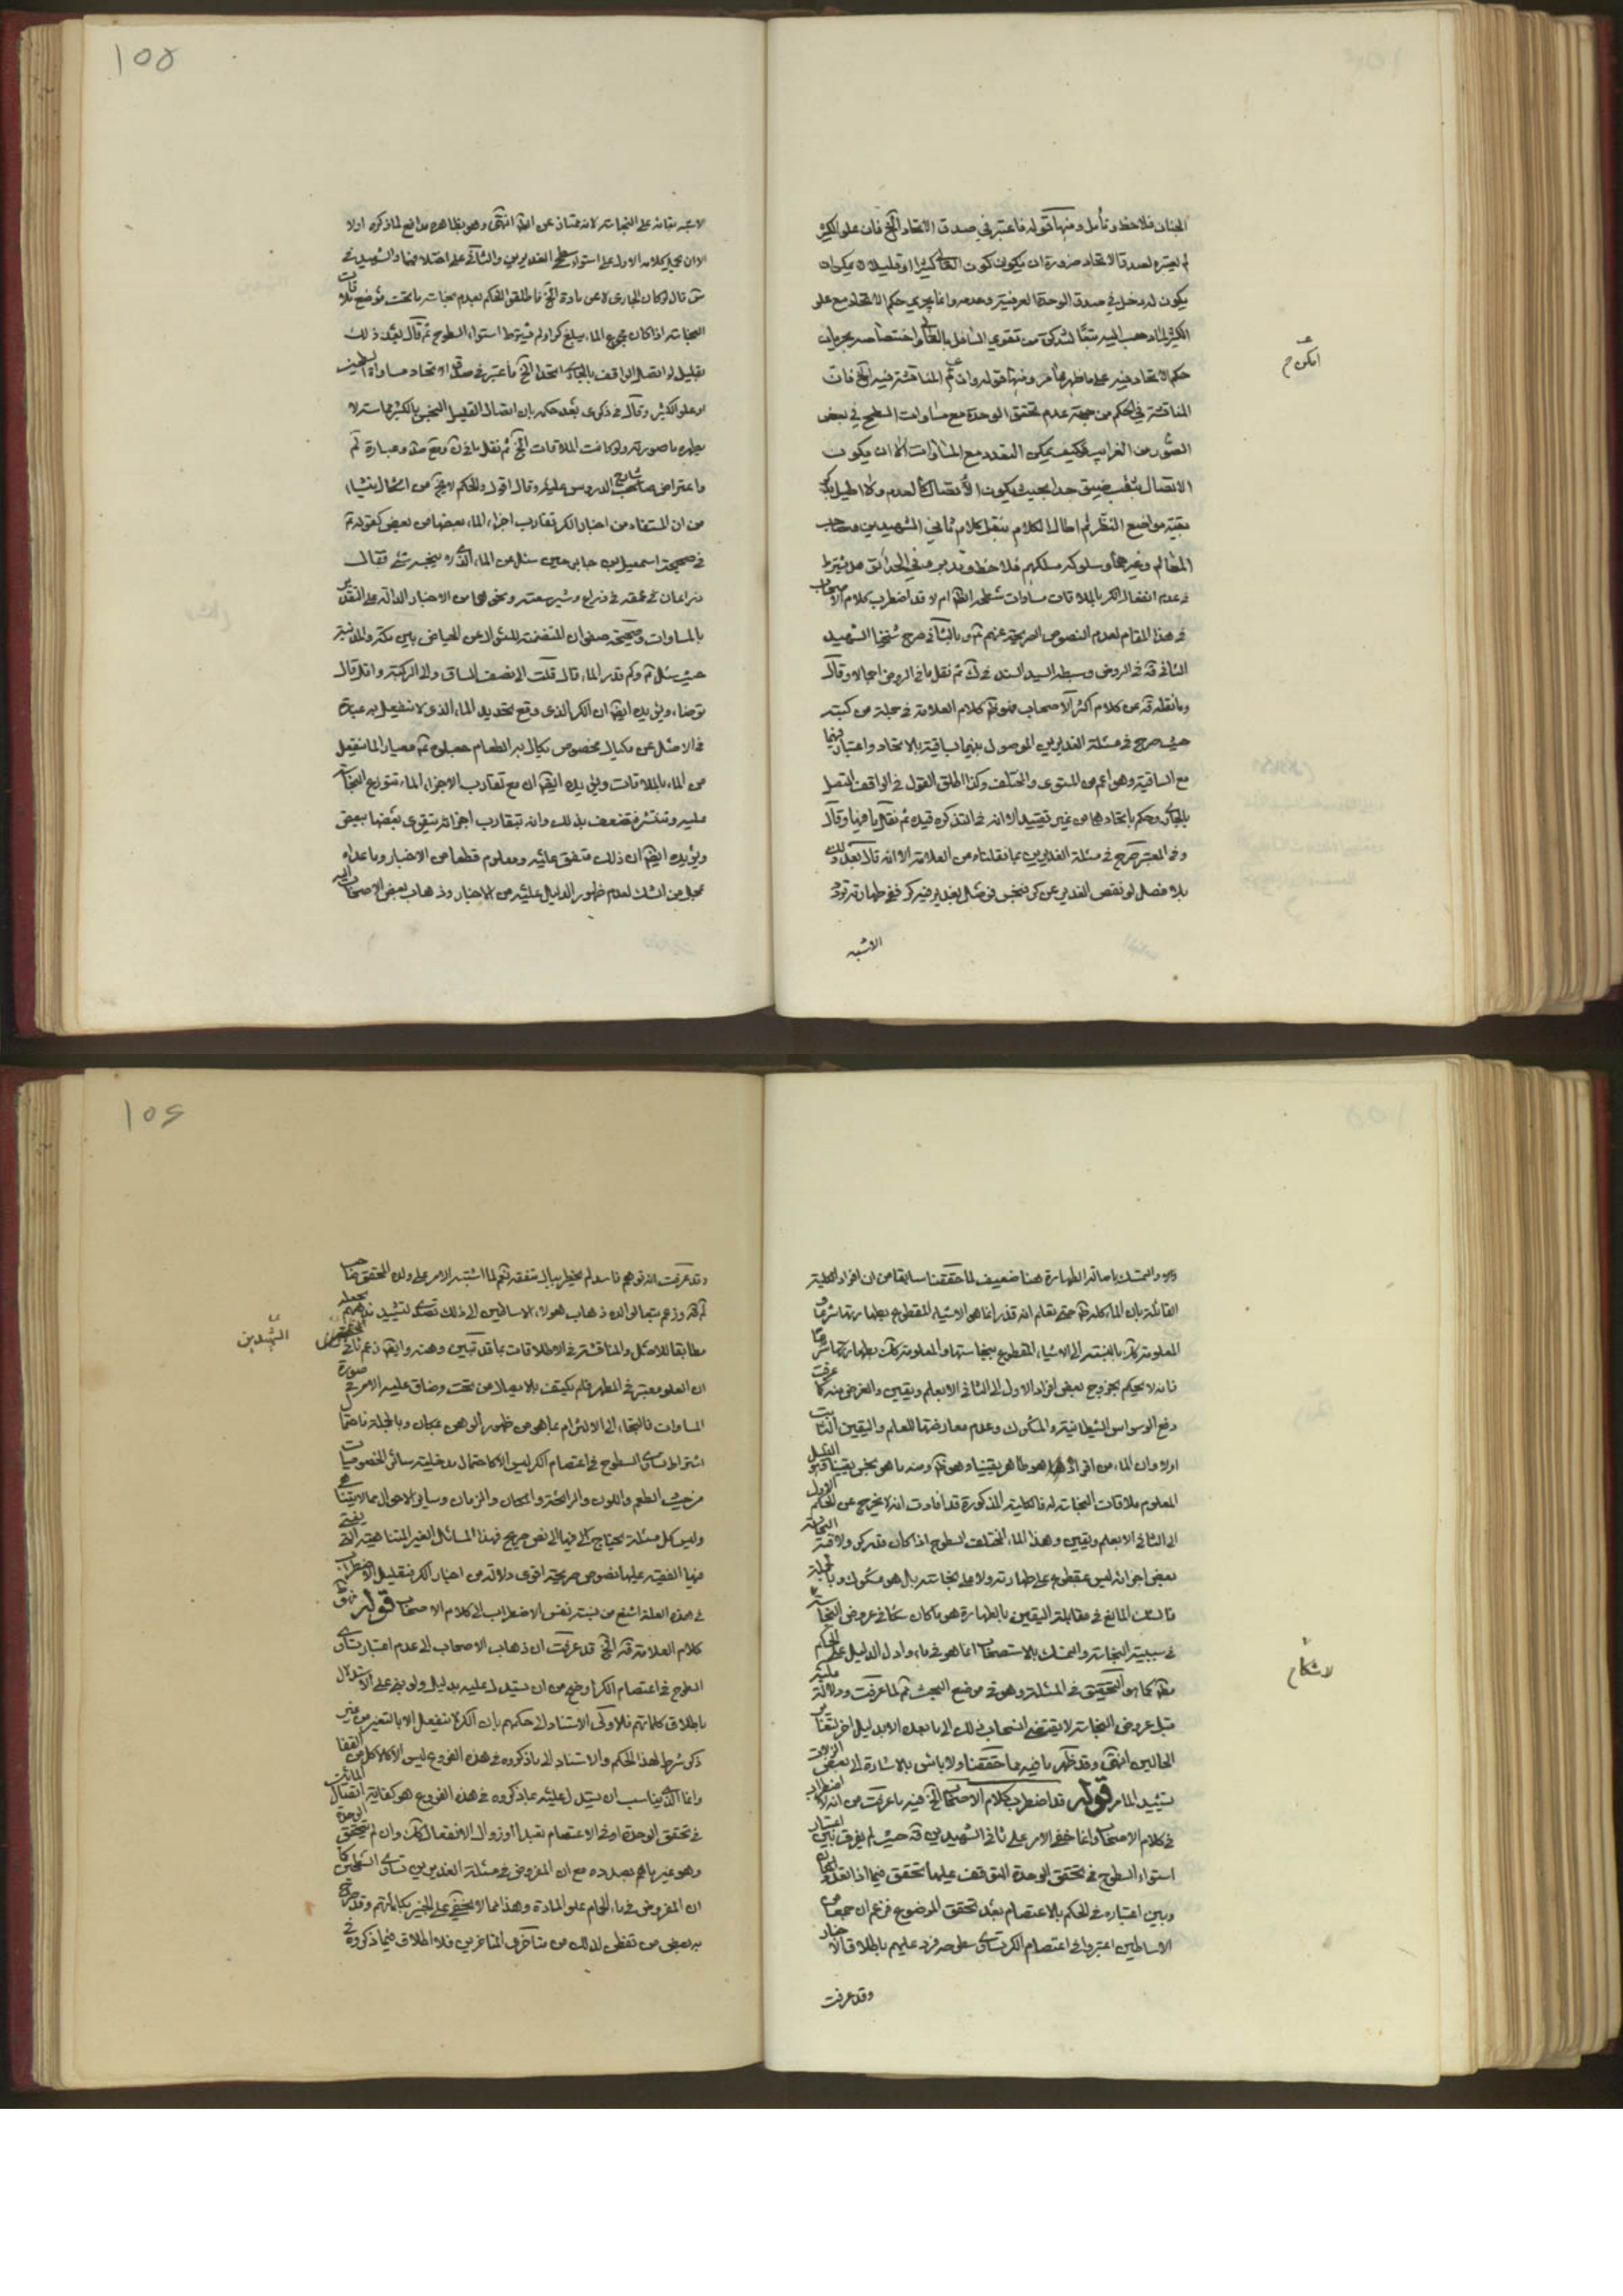 الجنان فلاحظ وتأمل ومنها قوله فاعتبر في صدق الاتحاد الخ فان علو الكثير
لم يعتبره لصدق الاتحاد ضرورة ان يكون كون العالي كثيرا او قليلا لا يمكن ان
يكون له دخل في صدق الوحدة العرفية وعدمه وانما يجري حكم الاتحاد مع علو
الكثير لما ذهب اليه تبعا من تقوي السافل بالعالي اختصاصه بجريان
حكم الاتحاد فيه على ما ظهر مما مر ومنها قوله وان تم المناقشة فيه الخ فان
المناقشة في الحكم من جهة عدم تحقق الوحدة مع مساوات السطح في بعض
الصور من الغرايب فكيف يمكن التعدد مع المساوات الا ان يكون
الاتصال بثقب ضيق جدا بحيث يكون الاتصال كالعدم ولا اطيل بذكر
بقية مواضع النظر ثم اطال الكلام بنقل كلام ثاني الشهيدين وصاحب
المعالم وغيرهما وسلوكه مسلكهم فلاحظ وتدبر وفي الحدائق هل يشترط
في عدم انفعال الكر بالملاقات مساوات سطحه الظ ام لا قد اضطرب كلام الاصحاب
في هذا المقام لعدم النصوص الصريحة عنهم ع وبالثاني صرح شيخنا الشهيد
الثاني قه في الروض وسبطه السيد السند في ك ثم نقل ما في الروض اجمالا وقال
وما نقله قه عن كلام اكثر الاصحاب منه كلام العلامة في جملة من كتبه
حيث صرح في مسئلة الغديرين الموصول بينهما بساقية بالاتحاد واعتبار فيهما
مع الساقية وهو اعم من المستوى والمختلف وكذا اطلق القول في الواقف المتصل
بالجاري وحكم باتحادهما من غير تقييد الا انه في التذكرة قيده ثم نقل ما فيها وقال
وفي المعتبر صرح في مسئلة الغديرين بما نقلناه من العلامة الا انه قال بعد ذلك
بلا فصل لو نقص الغدير عن كر فنجس فوصل بغدير فيه كر ففي طهارته تردد
الاشبه
الكون ح
١٥٥
الاشبه بقائه على النجاسة لانه ممتاز عن الظ انتهى وهو بظاهره مدافع لما ذكره اولا
الا ان يحمل كلامه الاول على استواء سطح الغديرين والثاني على اختلافهما والشهيد في
س قال لو كان الجاري لا عن مادة الخ فاطلق الحكم بعدم نجاسة ما تحت موضع ملاقات
النجاسة اذا كان مجموع الماء يبلغ كرا ولم يشترط استواء السطوح ثم قال بعد ذلك
بقليل لو اتصل الواقف بالجاري اتحدا الخ فاعتبر في صدق الاتحاد مساواة السطحين
او علو الكثير وقال في ذكرى بعد حكمه بان اتصال القليل النجس بالكثير مماسة لا
يطهره ما صورته ولو كانت الملاقات الخ ثم نقل ما في ن ومع صد وعبارة لم
واعتراض شارح الدروس عليه وقال اقول والحكم لا يخ من اشكال ينشاء
من ان المستفاد من اخبار الكر تقارب اجزاء الماء بعضها من بعض كقوله ع
في صحيحة اسمعيل بن جابر حين سئل عن الماء الذي لا ينجسه شئ فقال
ذراعان في عمقه في ذراع وشبر سعته ونحوهما من الاخبار الدالة على التقدير
بالمساوات وصحيحة صفوان المتضمنة للسؤال عن الحياض بين مكة والمدينة
حيث سئل ع وكم قدر الماء قال قلت الى نصف الساق والى الركبة واقل قال
توضاء ويؤيده ايضا ان الكر الذي وقع تحديد الماء الذي لا ينفعل به عبارة
في الاصل عن مكيال مخصوص يكال به الطعام جعلوه ع معيارا لما ينفعل
من الماء بالملاقات ويؤيده ايضا ان مع تقارب الاجزاء الماء تتوزع النجاسة
عليه وتنتشر فتضعف بذلك وانه بتقارب اجزائه يتقوى بعضها ببعض
ويؤيده ايضا ان ذلك متفق عليه ومعلوم قطعا من الاخبار وما عداه
محل من الشك لعدم ظهور الدليل عليه من الاخبار وذهاب بعض الاصحاب اليه
والتمسك باصالة الطهارة هنا ضعيف لما حققنا سابقا من ان افراد الكلية
القائلة بان الماء كله طاهر حتى تعلم انه قذر انما هو الاشياء المقطوع بطهارتها شرعا
المعلومة كك بالنسبة الى الاشياء المقطوع بنجاستها والمعلومة كك بطهارتها شرعا
فانه لا يحكم بخروج بعض افراد الاول الى الثاني الا بعلم ويقين والغرض منه كما عرفت
دفع الوسواس الشيطانية والشكوك وعدم معارضتها للعلم واليقين الثابت
اولا وان الماء من افراده ما هو طاهر يقينا وهو ومنه ما هو نجس يقينا وهو القليل
المعلوم ملاقات النجاسة له فالكلية المذكورة قد افادت انه لا يخرج عن الحكم الاول
الى الثاني الا بعلم ويقين وهذا الماء المختلف السطوح اذا كان قدر كر ولاقته النجاسة
بعض اجزائه ليس بمقطوع على طهارته ولا على نجاسته بل هو مشكوك وبالجملة
فالشك المانع في مقابلة اليقين بالطهارة هو ما كان شكا في عروض النجاسة
في سببية النجاسة والتمسك بالاستصحاب انما هو فيما دل الدليل على الحكم
مط كما هو التحقيق في المسئلة وهو في موضع البحث ثم لما عرفت ودلالة عليه
قبل عروض النجاسة لا يقتضي انسحاب ذلك الى ما بعده الا بدليل اخر لتغاير
الحالين انتهى وقد ظهر ما فيه مما حققنا ولا باس بالاشارة الى بعض الزلات
تشييد المامر قوله قد اضطرب كلام الاصحاب الخ فيه ما عرفت من انه لا اضطراب
في كلام الاصحاب وانما خفي الامر على ثاني الشهيدين قه حيث لم يفرق بين اعتبار
استواء السطوح في تحقق الوحدة المتوقف عليها تحقق فيما اذا تعدد
وبين اعتباره في الحكم بالاعتصام بعد تحقق الموضوع فزعم ان جمعا من
الاساطين اعتبروا في اعتصام الكر تساوي سطوحه فرد عليهم باطلاق الاخبار
وقد عرفت
لا شكا ح
١٥٦
وقد عرفت انه توهم فاسد لم يخطر ببال متفقه نعم لما اشتبه الامر على ولده المحقق صاحب
لم قه وزعم تبعا لوالده ذهاب هؤلاء الاساطين الى ذلك تصدى لتشييد مذهبهم بجعله
مطابقا للاصل والمناقشة في الاطلاقات بما قد تبين وهنه وايضا زعم ثاني
ان العلو معتبر في المطهر فلم يكتف بالايصال من تحت وضاق عليه الامر في صورة
المساوات فالتجاء الى الالتزام بما هو من ظهور الوهن بمكان وبالجملة فاحتمال
اشتراط تساوي السطوح في اعتصام الكر ليس الا كاحتمال مدخلية سائر الخصوصيات
من حيث الطعم واللون والرائحة والمكان والزمان وساير الاحوال مما لا يتناهى
وليس كل مسئلة يحتاج الى فيها الى نص صريح فهذا المسائل الغير المتناهية التي يفتي
فيها الفقيه عليها نصوص صريحة اقوى دلالة من اخبار الكر فتعليل الاضطراب
في هذه العلة اشنع من نسبة نفس الاضطراب الى كلام الاصحاب قوله فهو ظ
كلام العلامة قه الخ قد عرفت ان ذهاب الاصحاب الى عدم اعتبار تساوي
السطوح في اعتصام الكر اوضح من ان يستدل عليه بدليل ولو بنى على الاستدلال
باطلاق كلماتهم فالاولى الاستناد الى حكمهم بان الكر لا ينفعل الا بالتغير من غير
ذكر شرط لهذا الحكم والاستناد الى ما ذكروه في هذه الفروع ليس الا كالاكل من القفا
وانما الذي يناسب ان يستدل عليه بما ذكروه في هذه الفروع هو كفاية اتصال المائين
في تحقق الوحدة او في الاعتصام تعبدا او زوال الانفعال كك وان لم يتحقق الوحدة
وهو غير ما هم بصدده مع ان المفروض في مسئلة الغديرين تساوي السطحين كما
ان المفروض في ماء الحمام علو المادة وهذا مما لا يخفى على الخبير بكلماتهم وقد صرح
به بعض من تفطن لذلك من متاخري المتاخرين فلا اطلاق فيما ذكروه في
الشهيدين